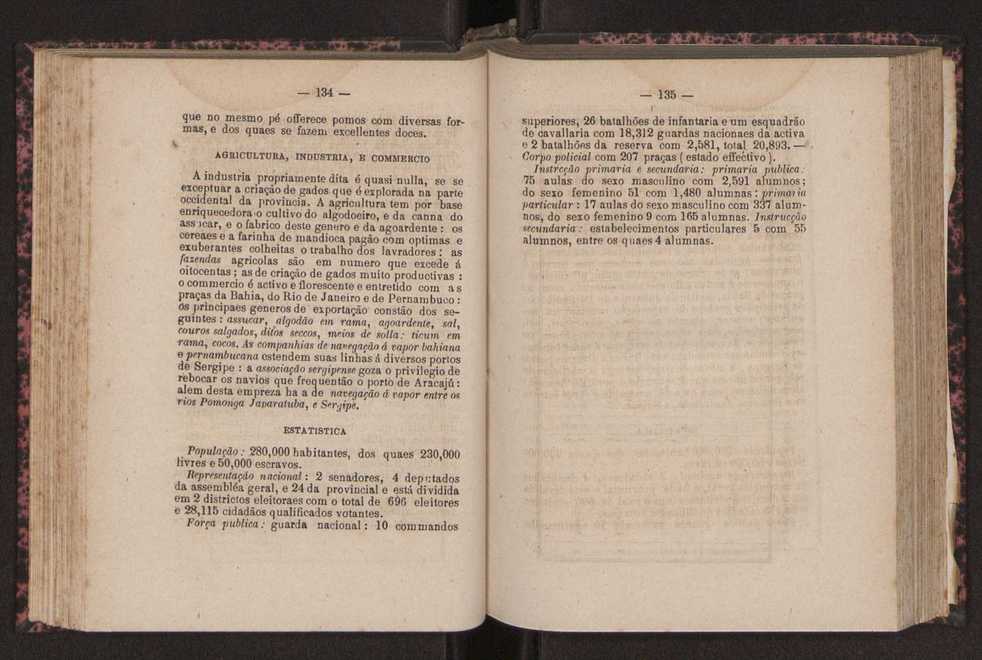 — 134 —
que no mesmo pé offerece pomos com diversas for-
mas, e dos quaes se fazem excellentes doces.
AGRICULTURA, INDUSTRIA, E COMMERCIO
A industria propriamente dita é quasi nulla, se se
exceptuar a criação de gados que é explorada na parte
occidental da provincia. A agricultura tem por base
enriquecedora o cultivo do algodoeiro, e da canna do
assucar, e o fabrico deste genero e da agoardente : os
cereaes e a farinha de mandioca pagão com optimas e
exuberantes colheitas o trabalho dos lavradores : as
fazendas agricolas são em numero que excede á
oitocentas ; as de criação de gados muito productivas :
o commercio é activo e florescente e entretido com as
praças da Bahia, do Rio de Janeiro e de Pernambuco :
os principaes generos de exportação constão dos se-
guintes : assucar, algodão em rama, agoardente, sal,
couros salgados, ditos seccos, meios de solla: ticum em
rama, cocos. As companhias de navegação á vapor bahiana
e pernambucana estendem suas linhas á diversos portos
de Sergipe : a associação sergipense goza o privilegio de
rebocar os navios que frequentão o porto de Aracajú :
alem desta empreza ha a de navegação á vapor entre os
rios Pomonga Japaratuba, e Sergipe.
ESTATISTICA
População : 280,000 habitantes, dos quaes 230,000
livres e 50,000 escravos.
Representação nacional : 2 senadores, 4 deputados
da assembléa geral, e 24 da provincial e está dividida
em 2 districtos eleitoraes com o total de 696 eleitores
e 28,115 cidadãos qualificados votantes.
Força publica : guarda nacional : 10 commandos
— 135 —
superiores, 26 batalhões de infantaria e um esquadrão
de cavallaria com 18,312 guardas nacionaes da activa
e 2 batalhões da reserva com 2,581, total 20,893. —
Corpo policial com 207 praças ( estado effectivo ).
Instrcção primaria e secundaria : primaria publica :
75 aulas do sexo masculino com 2,591 alumnos ;
do sexo femenino 51 com 1,480 alumnas : primaria
particular : 17 aulas do sexo masculino com 337 alum-
nos, do sexo femenino 9 com 165 alumnas. Instrucção
secundaria : estabelecimentos particulares 5 com 55
alumnos, entre os quaes 4 alumnas.